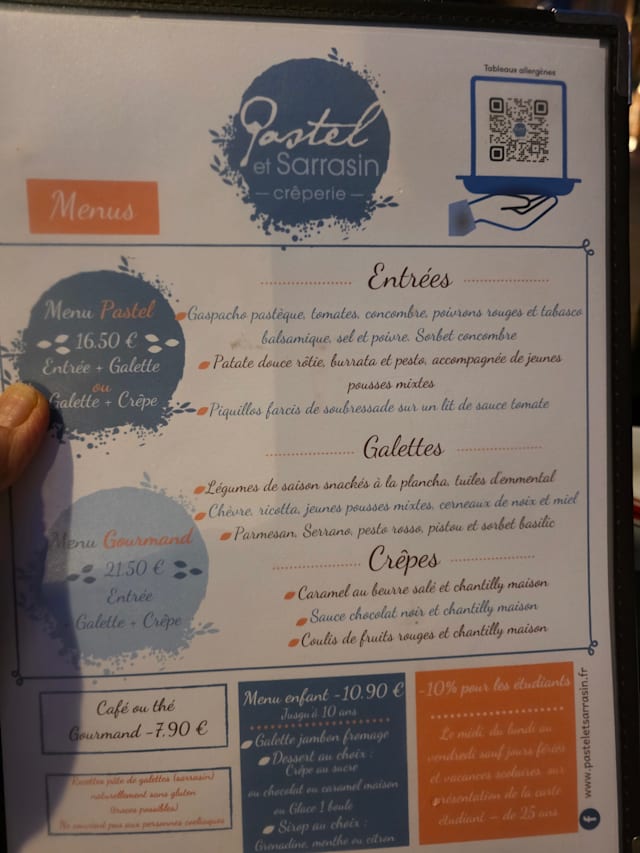 Tableaux allergènes
Pastel
et Sarrasin
crêperie
Menus
Menu Pastel
16.50 €
Entrée + Galette
ou
Galette + Crêpe
Entrées
Gaspacho pastèque, tomates, concombre, poivrons rouges et tabasco
balsamique, sel et poivre. Sorbet concombre
Patate douce rôtie, burrata et pesto, accompagnée de jeunes
pousses mixtes
Piquillos farcis de soubressade sur un lit de sauce tomate
Galettes
Légumes de saison snackés à la plancha, tuiles d'emmental
Chèvre, ricotta, jeunes pousses mixtes, cerneaux de noix et miel
Parmesan, Serrano, pesto rosso, pistou et sorbet basilic
Menu Gourmand
21.50 €
Entrée
Galette + Crêpe
Crêpes
Caramel au beurre salé et chantilly maison
Sauce chocolat noir et chantilly maison
Coulis de fruits rouges et chantilly maison
Café ou thé
Gourmand -7.90 €
Recettes pâte de galettes (sarrasin)
naturellement sans gluten
(traces possibles)
Ne convient pas aux personnes coeliaques
Menu enfant -10.90 €
Jusqu'à 10 ans
Galette jambon fromage
Dessert au choix :
Crêpe au sucre
ou chocolat ou caramel maison
ou Glace 1 boule
Sirop au choix :
Grenadine, menthe ou citron
-10% pour les étudiants
Le midi, du lundi au
vendredi sauf jours fériés
et vacances scolaires, sur
présentation de la carte
étudiant – de 25 ans
www.pasteletsarrasin.fr
f